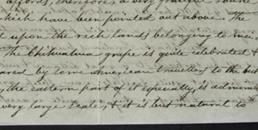 affords, therefore a very
which have been pointed out above. The
upon the rich lands belonging to
The Chihuahua grape is quite celebrated &
by some American travellers to the
the eastern part of it especially, is
very large scale, & it is but natural to